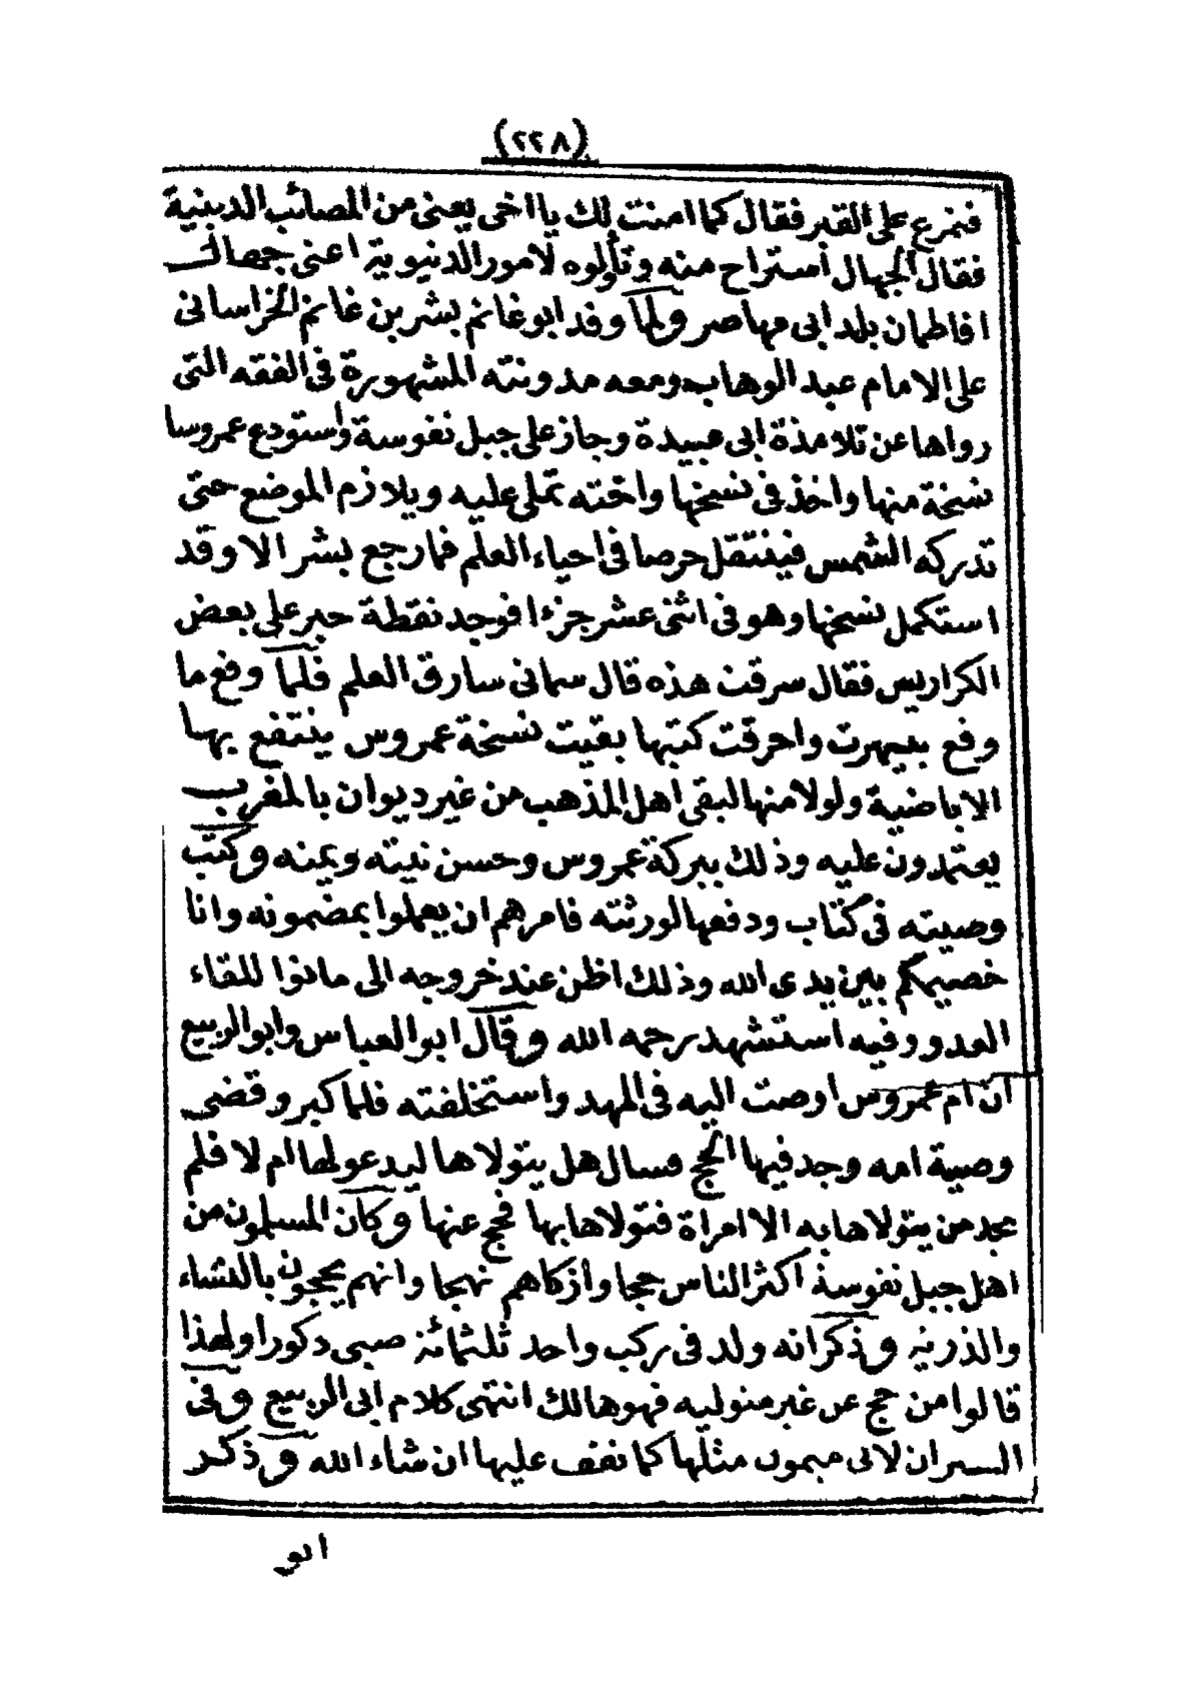 (٢٢٨)
فنمرغ على القبر فقال كما امنت لك يا اخى يعنى من المصائب الدينية
فقال الجهال أستراح منه وتأولوه لامور الدنيوية اعنى جهال
افاطمان بلد ابى مهاصر ولما وفد ابوغانم بشر بن غانم الخراسانى
على الامام عبد الوهاب ومعه مدونته المشهورة فى الفقه التى
رواها عن تلامذة ابى عبيدة وجاز على جبل نفوسة واستودع عمروسا
نسخة منها واخذ فى نسخها واخته تملى عليه ويلازم الموضع حتى
تدركه الشمس فينتقل حرصا فى احياء العلم فما رجع بشر الا وقد
استكمل نسخها وهو فى اثنى عشر جزءا فوجد نقطة حبر على بعض
الكراريس فقال سرقت هذه قال سمانى سارق العلم فلما وقع ما
وقع بتيهرت واحرقت كتبها بقيت نسخة عمروس ينتفع بها
الاباضية ولولا منها لبقى اهل المذهب من غير ديوان بالمغرب
يعتمدون عليه وذلك ببركة عمروس وحسن نيته ويمنه وكتب
وصيته فى كتاب ودفعها لورثته فامرهم ان يعملوا بمضمونه وانا
خصيمكم بين يدى الله وذلك اظن عند خروجه الى مانوا للقاء
العدو وفيه استشهد رحمه الله وقال ابوالعباس وابوالربيع
ان ام عمروس اوصت اليه فى المهد واستخلفته فلما كبر وقضى
وصية امه وجد فيها الحج فسال هل يتولاها ليدعولها ام لا فلم
يجد من يتولاها به الا امراة فتولاها بها فحج عنها وكان المسلمون من
اهل جبل نفوسة اكثر الناس حجا وازكاهم نهجا وانهم يحجون بالنساء
والذرية وذكر انه ولد فى ركب واحد ثلثمائة صبى دكورا ولهذا
قالوا من حج عن غير متوليه فهو هالك انتهى كلام ابى الربيع وفى
السيران لابى ميمون مثلها كما نقف عليها ان شاء الله وذكر
ابو